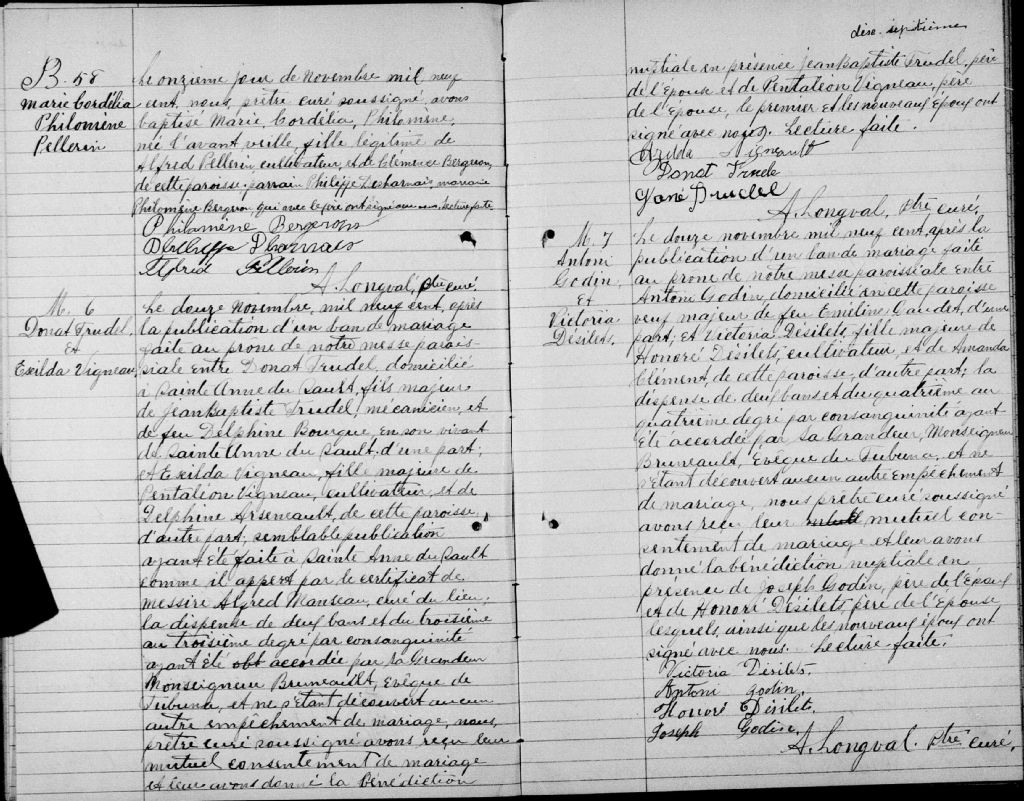 B. 58
Marie Cordélia
Philomène
Pellerin
Le onzième jour de Novembre mil neuf
cent, nous, prêtre curé soussigné, avons
baptisé Marie, Cordélia, Philomène,
née l'avant veille, fille légitime de
Alfred Pellerin cultivateur, et de Clémence Bergeron,
de cette paroisse. parrain Philippe Desharnais, marraine
Philomène Bergeron, qui avec le père ont signé avec nous. Lecture faite
Philomène Bergeron
Alfred Pellerin
A. Longval, Ptre curé.
M. 6
Donat Trudel,
Et
Exilda Vigneau
Le douze Novembre, mil neuf cent, après
la publication d'un ban de mariage
faite au prône de notre messe parois-
siale entre Donat Trudel, domicilié
à Sainte Anne du Sault, fils majeur
de Jean Baptiste Trudel, mécanicien, et
de feu Delphine Bourque, en son vivant
de Sainte Anne du Sault, d'une part;
et Exilda Vigneau, fille majeure de
Pentaléon Vigneau, cultivateur, et de
Delphine Arseneault, de cette paroisse,
d'autre part; semblable publication
ayant été faite à Sainte Anne du Sault
comme il appert par le certificat de
messire Alfred Manseau, curé du lieu;
la dispense de deux bans et du troisième
au troisième degré par consanguinité
ayant été obt accordée par sa Grandeur
Monseigneur Bruneault, Evêque de
Tubuna, et ne s'étant découvert aucun
autre empêchement de mariage, nous,
prêtre curé soussigné avons reçu leur
mutuel consentement de mariage
et leur avons donné la bénédiction
dix-septième
nuptiale en présence Jean Baptiste Trudel, père
de l'Epoux et de Pentaléon Vigneau, père
de l'Epouse, le premier et les nouveaux Epoux ont
signé avec nous. Lecture faite.
Exzilda Vigneault
Donat Trudel
Trudel
A. Longval, Ptre curé.
M. 7
Antoni
Godin,
Et
Victoria
Désilets.
Le douze novembre mil neuf cent, après la
publication d'un ban de mariage faite
au prône de notre messe paroissiale entre
Antoni Godin, domicilié en cette paroisse
veuf majeur de feu Emeline Gaudet, d'une
part; et Victoria Désilets, fille majeure de
Honoré Désilets, cultivateur, et de Amanda
Clément, de cette paroisse, d'autre part; la
dispense de deux bans et du quatrième au
quatrième degré par consanguinité ayant
été accordée par Sa Grandeur, Monseigneur
Bruneault, Evêque de Tubuna, et ne
s'étant découvert aucun autre empêchement
de mariage, nous prêtre curé soussigné
avons reçu leur mutuel con-
sentement de mariage et leur avons
donné la bénédiction nuptiale en
présence de Joseph Godin, père de l'Epoux
et de Honoré Désilets, père de l'Epouse
lesquels, ainsi que les nouveaux époux ont
signé avec nous. Lecture faite.
Victoria Désilets.
Antoni Godin.
Honoré Désilets.
Joseph Godin.
A. Longval. Ptre curé.